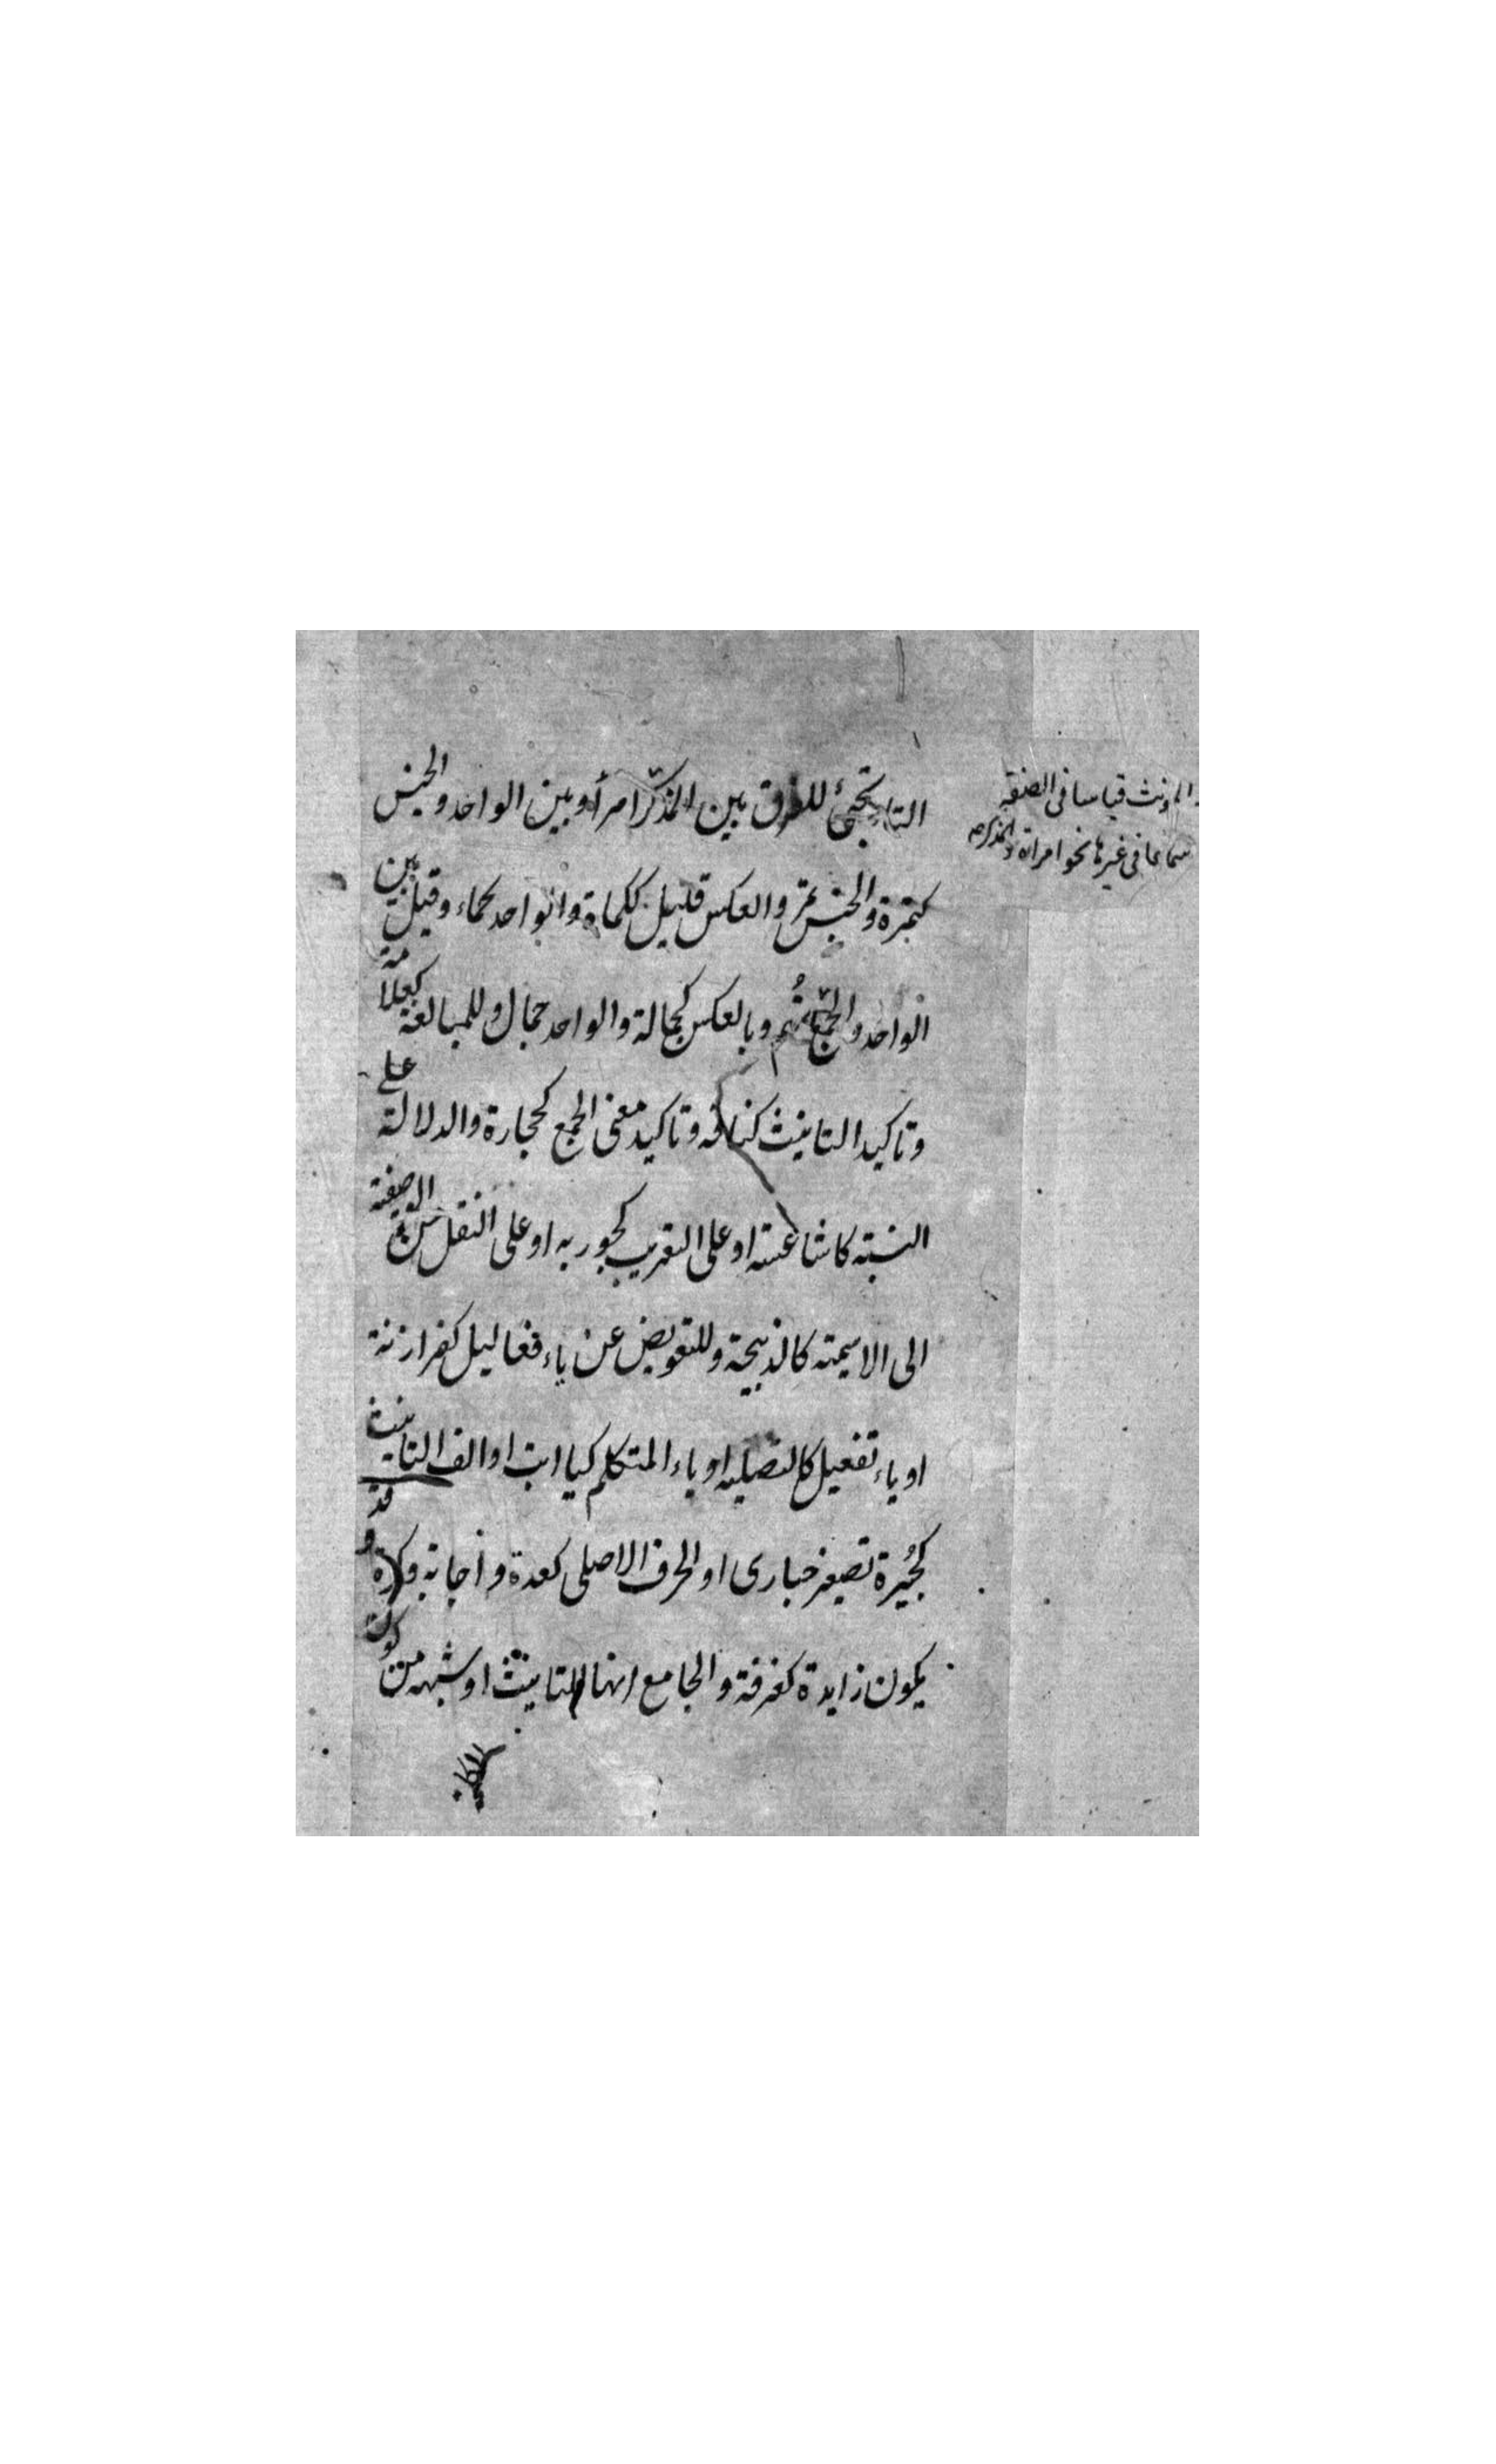 التاء تجئ للفرق بين المذكر امرأ وبين الواحد والجنس
كتمرة والجنس تمر والعكس قليل ككماة والواحد كماء وقيل بين
الواحد والجمع وبالعكس كجمالة والواحد جمال وللمبالغة كعلامة
وتاكيد التانيث كناقه وتاكيد معنى الجمع كحجارة والدلالة على
النسبته كاشاعثته او على التعريب كجوربه او على النقل من الوصفية
الى الاسميته كالذبيحة وللتعويض عن ياء فعاليل كفرازنة
او ياء تفعيل كالتصليه او ياء المتكلم كيا ابت او الف التانيث
كحبيرة تصغير حبارى او الحرف الاصلى كعدة واجابة وكرة وقد
يكون زايدة كغرفة والجامع انها للتانيث او شبهه من كونه
المونث قياسا فى الصفة
سماعا فى غيرها نحو امراة والمذكر